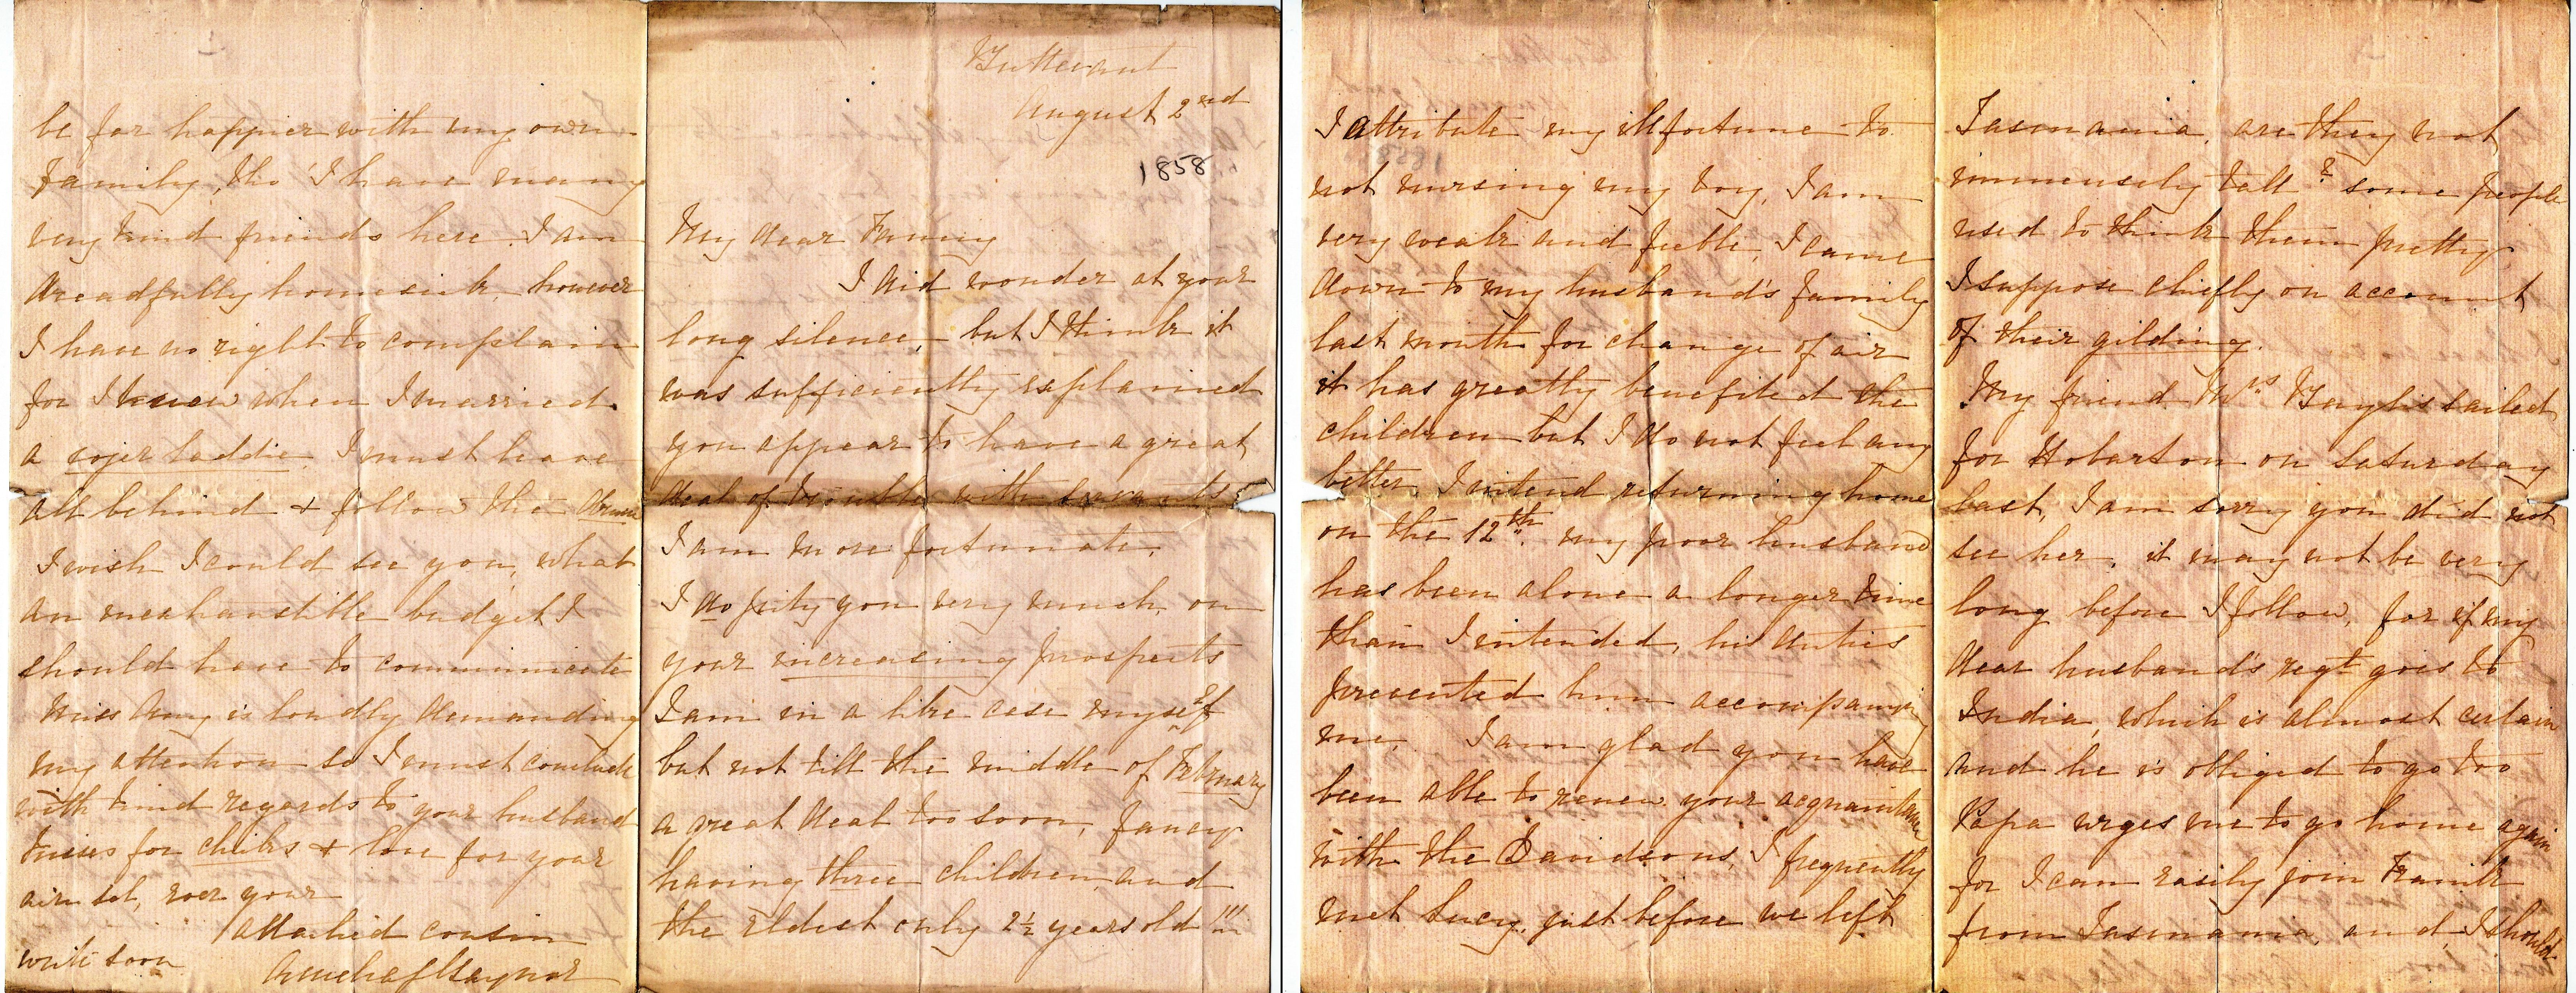 Buttevant
August 2nd
1858
My dear Fanny
I did wonder at your
long silence, but I think it
was sufficiently explained
you appear to have a great
deal of trouble with servants
I am more fortunate.
I do pity you very much, on
your increasing prospects
I am in a like case myself
but not till the middle of February
a great deal too soon, fancy
having three children, and
the eldest only 2½ years old !!!
I attribute my ill fortune to
not nursing my boy, I am
very weak and feeble, I came
down to my husband's family
last month for change of air
it has greatly benefited the
children but I do not feel any
better, I intend returning home
on the 12th. my poor husband
has been alone a longer time
than I intended, his duties
prevented him accompanying
me. I am glad you have
been able to renew your acquaintance
with the Davidsons, I frequently
met Lucy, just before we left
Tasmania, are they not
immensely tall? some people
used to think them pretty
I suppose chiefly on account
of their gilding.
My friend Mrs sailed
for Hobarton on Saturday
last, I am sorry you did not
see her, it may not be very
long before I follow, for if my
dear husband's regt goes to
India, which is almost certain
and he is obliged to go too
Papa urges me to go home again
for I can easily join Frank
from Tasmania, and, I should
be far happier with my own
family, tho' I have many
very kind friends here. I am
dreadfully homesick, however
I have no right to complain
for I knew when I married
a sojer laddie, I must leave
all behind & follow the drum
I wish I could see you, what
an inexhaustible budget I
should have to communicate
Miss Amy is loudly demanding
my attention so I must conclude
with kind regards to your husband
kisses for chicks & love for your
ain sel, ever your
attached cousin
write soon